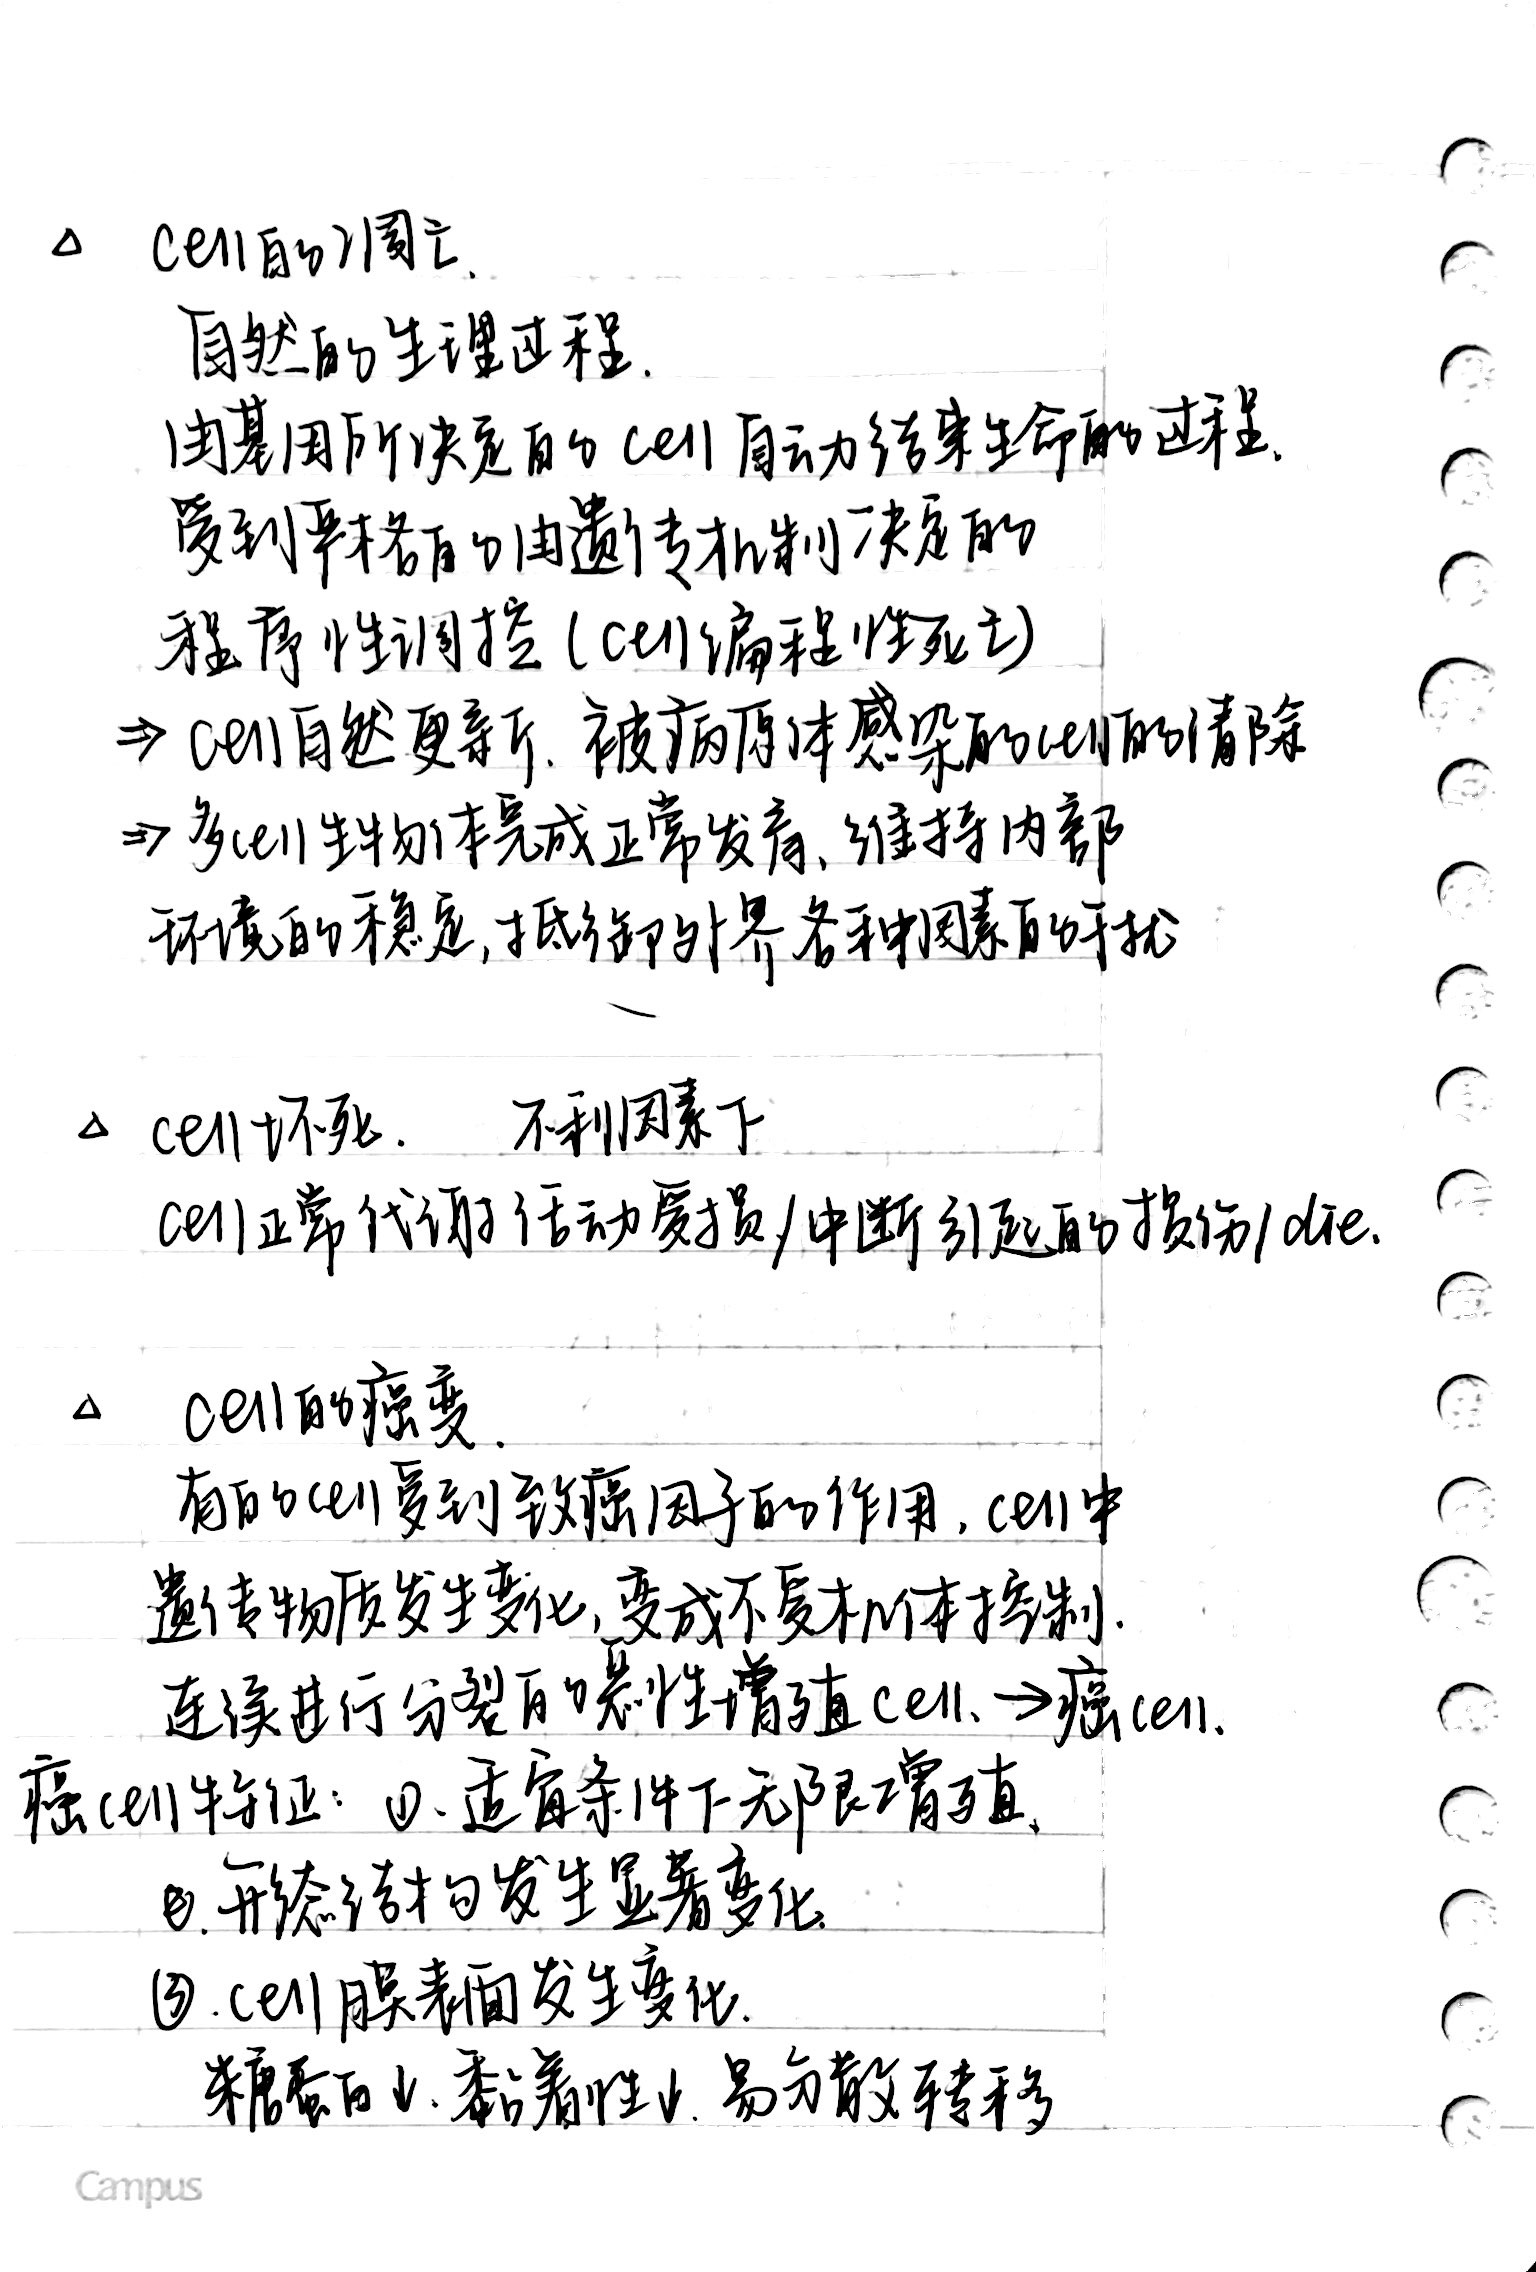 △ cell的凋亡.
自然的生理过程.
由基因所决定的cell自动结束生命的过程.
受到严格的由遗传机制决定的
程序性调控(cell编程性死亡)
⇒ cell自然更新、被病原体感染的cell的清除
⇒ 多cell生物体完成正常发育、维持内部
环境的稳定,抵御外界各种因素的干扰
△ cell坏死. 不利因素下
cell正常代谢活动受损/中断引起的损伤/die.
△ cell的癌变.
有的cell受到致癌因子的作用,cell中
遗传物质发生变化,变成不受机体控制.
连续进行分裂的恶性增殖cell. → 癌cell.
癌cell特征: ①、适宜条件下无限增殖、
②. 形态结构发生显著变化.
③. cell膜表面发生变化.
糖蛋白↓. 黏着性↓. 易分散转移
Campus